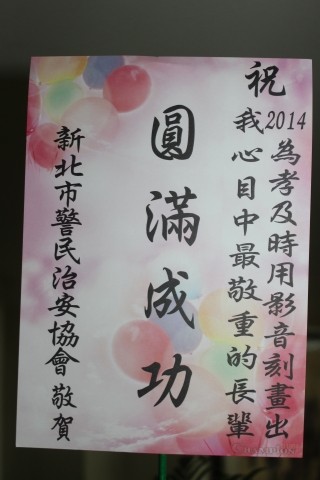 祝
2014為孝及時用影音刻畫出
我心目中最敬重的長輩
圓滿成功
新北市警民治安協會 敬賀